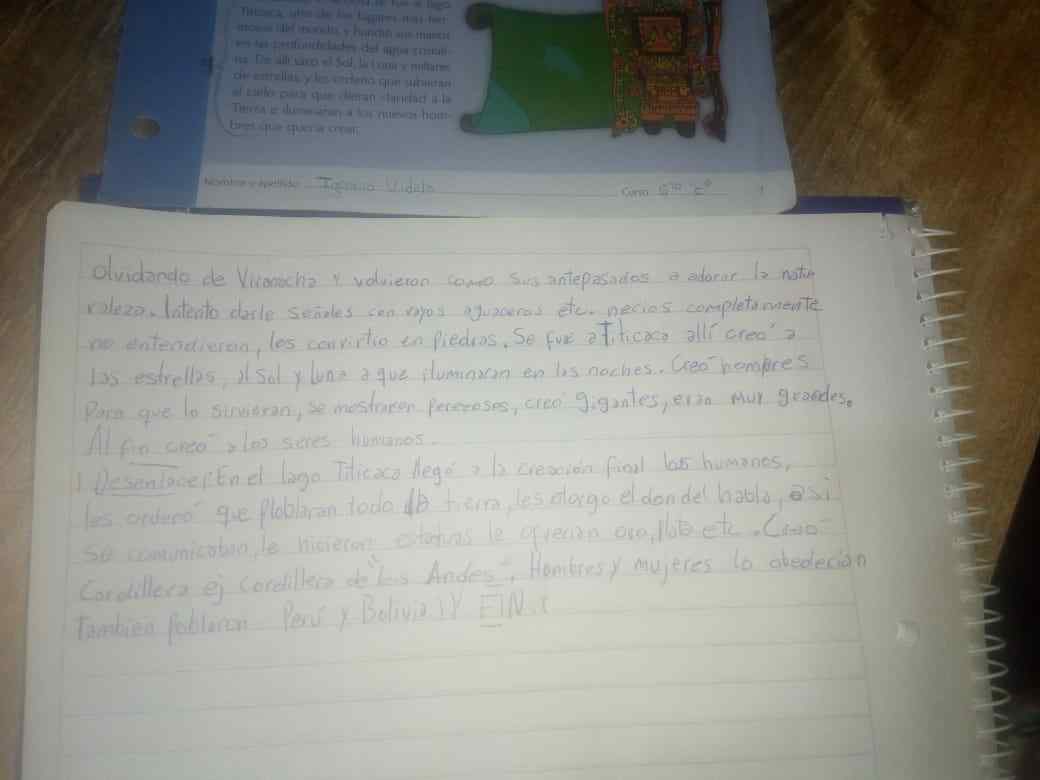 se fue al lago
Titicaca, uno de los lugares más her-
mosos del mundo, y hundió sus manos
en las profundidades del agua cristali-
na. De allí sacó el Sol, la Luna y millares
de estrellas, y les ordenó que subieran
al cielo para que dieran claridad a la
Tierra e iluminaran a los nuevos hom-
bres que quería crear.
Nombre y apellido: Ignacio Videla Curso: 5to "C"
olvidando de Viracocha y volvieron como sus antepasados a adorar la natu
raleza. Intento darle señales con rayos aguaceros etc. necios completamente
no entendieron, les convirtio en Piedras. Se fue a Titicaca allí creó a
las estrellas, al Sol y luna a que iluminaran en las noches. Creó hombres
Para que lo sirvieran, se mostraron perezosos, creó gigantes, eran muy grandes.
Al fin creó a los seres humanos.
Desenlace: En el lago Titicaca llegó a la creación final los humanos,
les ordenó que Ploblaran toda la tierra, les otorgo el don del habla, asi
se comunicaban, le hicieron estatuas le ofrecian oro, plata etc. Creó
Cordillera ej Cordillera de "Los Andes". Hombres y mujeres lo obedecian
Tambien Poblaron Perú y Bolivia. Y FIN.